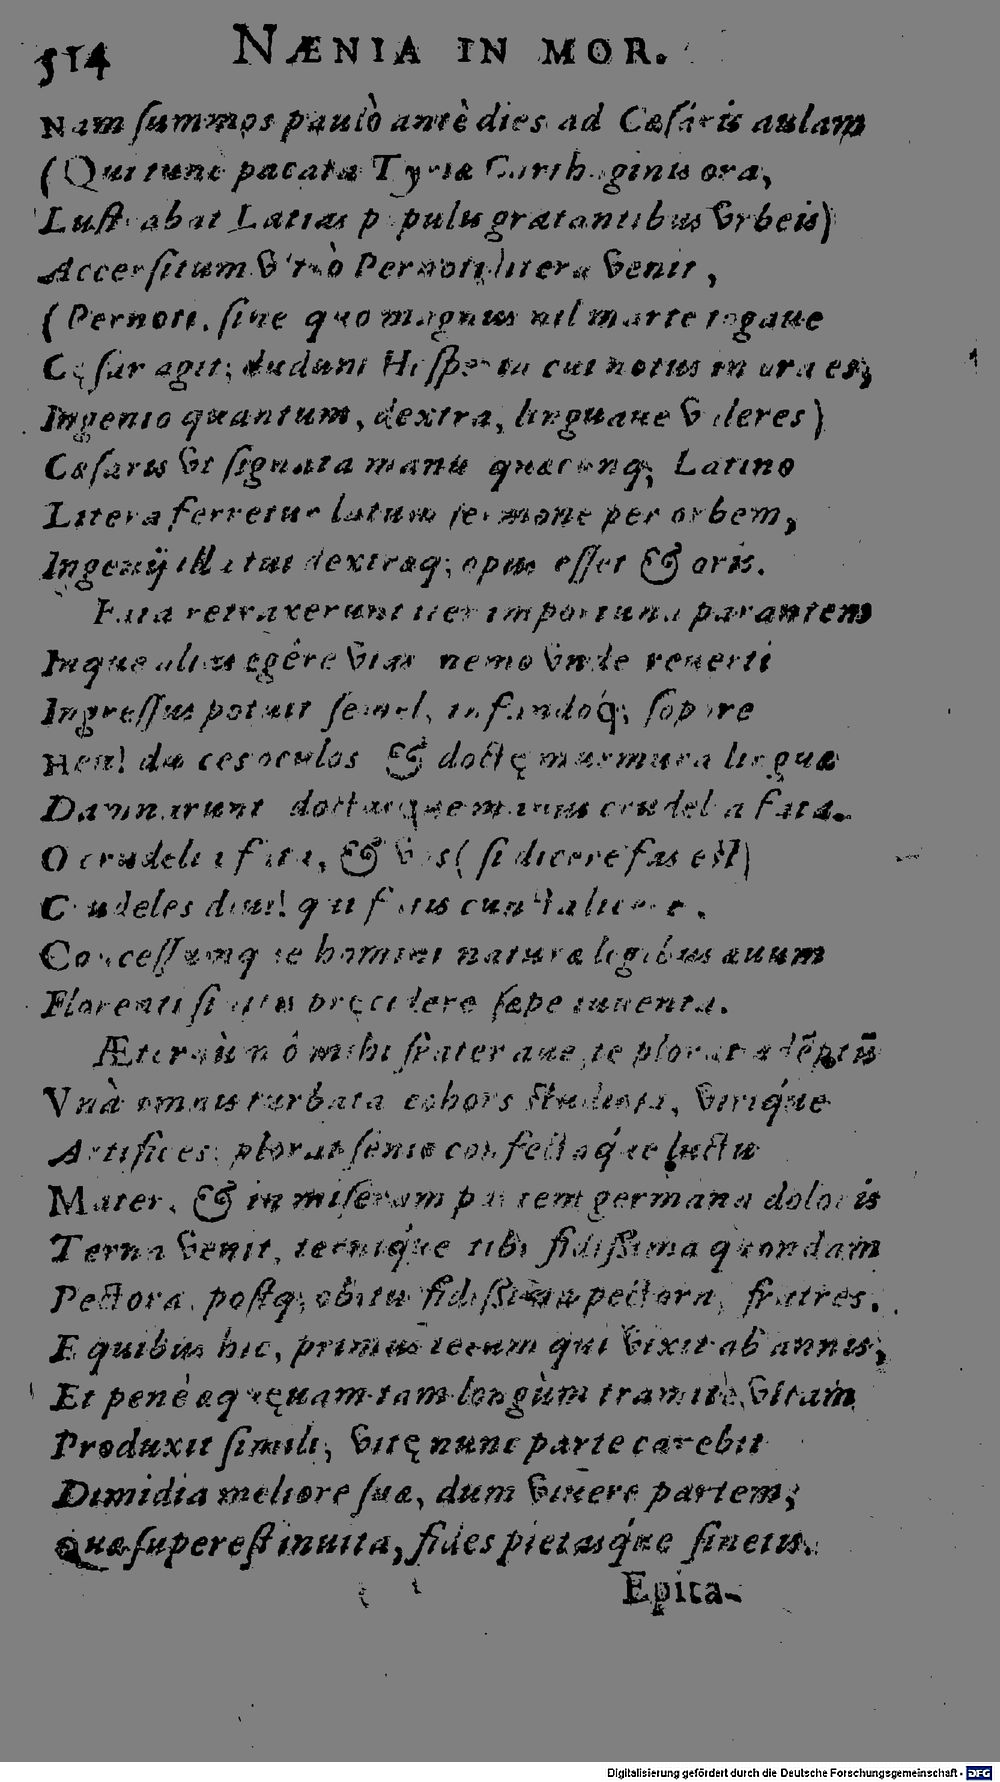 514 NÆNIA IN MOR.
Nam ſummos paulò antè dies ad Cæſaris aulam
(Qui tunc pacata Tyriæ Carthaginis ora,
Luſtrabat Latias populis gratantibus vrbeis)
Accerſitum vltrò Pernoti litera venit,
(Pernoti, ſine quo magnus nil marte togaue
Cęſar agit; dudum Heſperia cui notus in ora es,
Ingenio quantum, dextra, linguaue valeres)
Cæſaris vt ſignata manu quæcunq; Latino
Litera ferretur latum ſermone per orbem,
Ingenij illi tui dextræq; opus eſſet & oris.
Fata retraxerunt iter importuna parantem
Inque alias egêre vias nemo vnde reuerti
Ingreſſus potuit ſemel, infandoq́; ſopore
Heu! dulces oculos & doctę murmura linguæ
Damnarunt doctasque manus crudelia fata.
O crudelia fata, & vos (ſi dicere fas eſt)
Crudeles diui! qui fatis cuncta licere.
Conceſſumque homini naturæ legibus æuum
Florenti ſinitis pręcidere ſæpe iuuenta.
Æternùm ô mihi frater aue, te plorat adēptū
Vnà omnis turbata cohors ſtudioſa, virique
Artifices: plorat ſenio confectaq́ue luctu
Mater, & in miſeram partem germana doloris
Terna venit, terniq́ue tibi fidiſſima quondam
Pectora, poſtq; obitum fidiſſima pectora, fratres.
E quibus hic, primus tecum qui vixit ab annis,
Et penè æquęuam tam longùm tramite vitam
Produxit ſimili, vitę nunc parte carebit
Dimidia meliore ſuæ, dum viuere partem,
Quæ ſupereſt inuita, fides pietasq́ue ſinetis.
Epita-
Digitalisierung gefördert durch die Deutsche Forschungsgemeinschaft - DFG